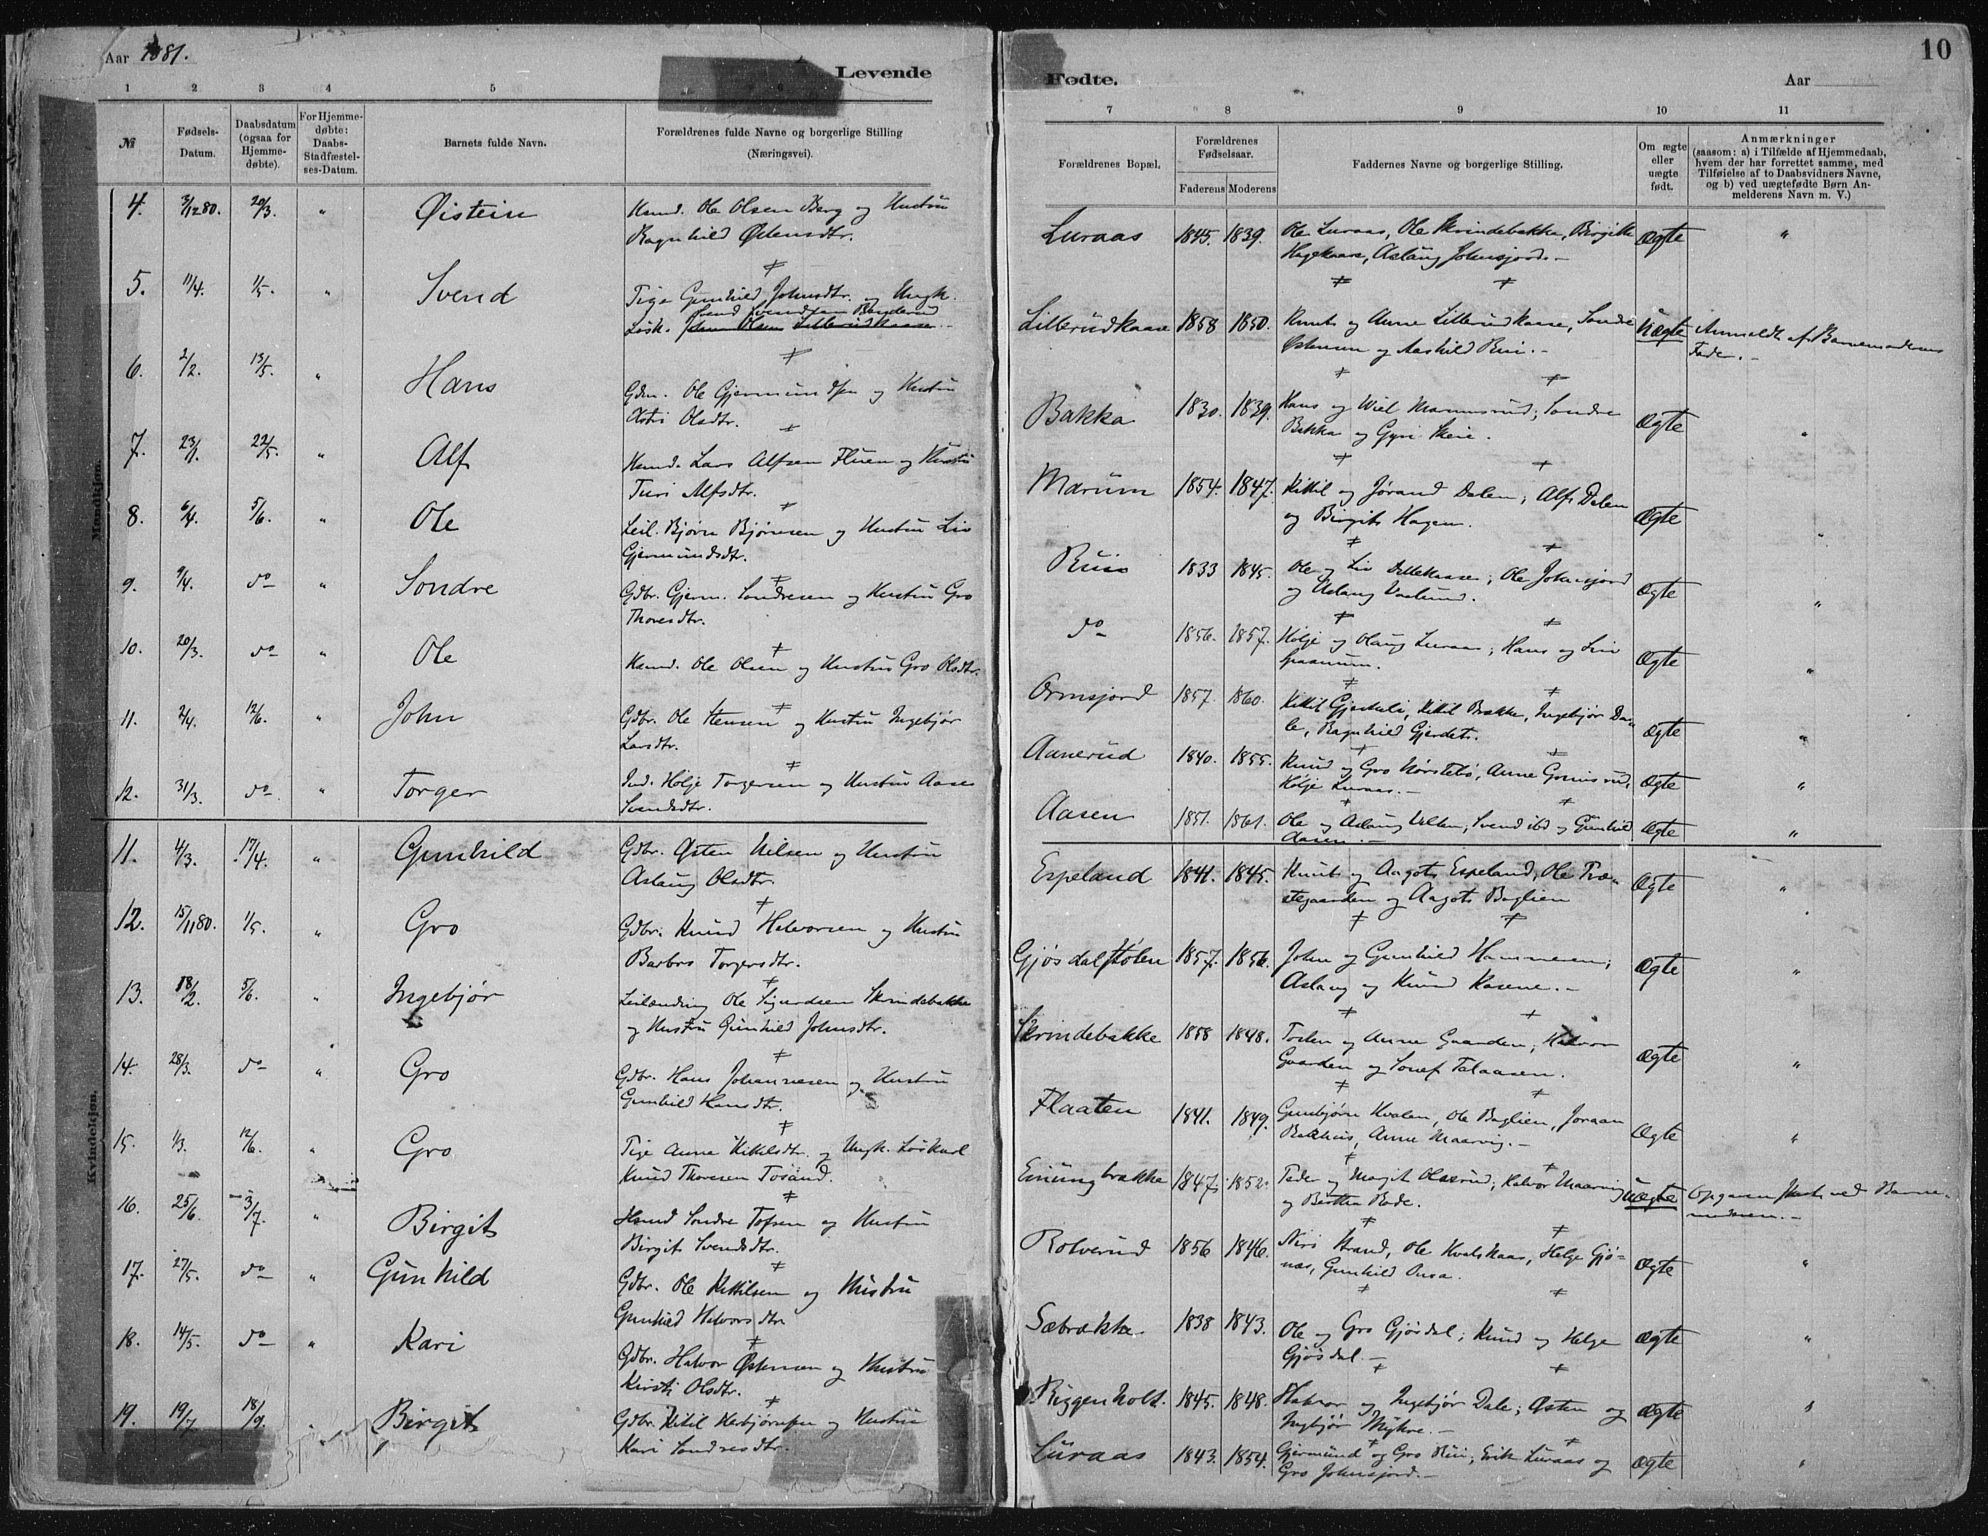 Aar 1881.
Levende
1 2 3 4 5 6
№
Fødsels-
Datum.
Daabsdatum
(ogsaa for
Hjemme-
døbte).
For Hjemme-
døbte:
Daabs-
Stadfæstel-
ses-Datum.
Barnets fulde Navn.
Forældrenes fulde Navne og borgerlige Stilling
(Næringsvei).
Mandkjøn.
4. 3/12 80. 20/3. " Øistein Husmd. Ole Olsen Berg og Hustru
Ragnhild Østensdtr.
5. 11/4. 1/5. " Svend Tige Gunhild Johnsdtr. og Ungk.
Svend Svendsen
Losk. John Olsen Lillerudkaase.
6. 2/2. 13/5. " Hans Gdm. Ole Gjermundsen og Hustru
Astri Olsdtr.
7. 23/1. 22/5. " Alf Husmd. Lars Alfsen Fluen og Hustru
Turi Alfsdtr.
8. 6/4. 5/6. " Ole Leil. Bjørn Bjørnsen og Hustru Liv
Gjermundsdtr.
9. 9/4. do " Sondre Gdbr. Gjerm. Sondresen og Hustru Gro
Thoresdtr.
10. 20/3. do " Ole Husmd. Ole Olsen og Hustru Gro Olsdtr.
11. 2/4. 12/6. " John Gdbr. Ole Stensen og Hustru Ingebjør
Larsdtr.
12. 31/3. do " Torger Ind. Hølje Torgersen og Hustru Aase
Svendsdtr.
Kvindekjøn.
11. 4/3. 17/4. " Gunhild Gdbr. Østen Nilsen og Hustru
Aslaug Olsdtr.
12. 15/11 80. 1/5. " Gro Gdbr. Knud Halvorsen og Hustru
Barbro Torgersdtr.
13. 18/2. 5/6. " Ingebjør Leilænding Ole Sigurdsen Skrindebakke
og Hustru Gunhild Johnsdtr.
14. 28/3. do " Gro Gdbr. Hans Johannesen og Hustru
Gunhild Hansdtr.
15. 1/3. 12/6. " Gro Tige Anne Kittilsdtr. og Ungk. Løskarl
Knud Thoresen Tosand.
16. 25/6. 3/7. " Birgit Husmd Sondre Tofsen og Hustru
Birgit Svendsdtr.
17. 27/5. do " Gunhild Gdbr. Ole Kittilsen og Hustru
Gunhild Halvorsdtr
18. 14/5. do " Kari Gdbr. Halvor Østensen og Hustru
Kirsti Olsdtr.
19. 19/7. 18/9. " Birgit Gdbr. Kittil Herbjørnsen og Hustru
Kari Sondresdtr.
10
Fødte.
Aar
7 8 9 10 11
Forældrenes Bopæl.
Forældrenes
Fødselsaar.
Faderens Moderens
Faddernes Navne og borgerlige Stilling.
Om ægte
eller
uægte
født.
Anmærkninger
(saasom: a) i Tilfælde af Hjemmedaab,
hvem der har forrettet samme, med
Tilføielse af to Daabsvidners Navne,
og b) ved uægtefødte Børn An-
melderens Navn m. V.)
Luraas 1845. 1839. Ole Luraas, Ole Skrindebakke, Birgitte ægte "
Hagekaase, Aslaug Johnsjord. -
Lillerudkaase 1858 1850. Knut og Anne Lillerudkaase, Sondre Uægte Anmeldt af Barnemoderens
Østensen og Aashild Rui. - Fader. -
Bakka 1830. 1839. Hans og Marumsrud; Sondre ægte "
Bakka og Gyri Skeie.
Marum 1854. 1847. Kittil og Jørand Dalen, Alf Dalen ægte "
og Birgit Hagen.
Rui 1833 1845. Ole og Liv; Ole Johnsjord ægte "
og Aslaug.
do 1856. 1857. Hølje og Olaug Luraas; Hans og Liv ægte "
Ormsjord 1857. 1860. Kittil, Kittil Brække, Ingebjør Da- ægte "
le, Ragnhild Gjerdet.
Aanerud 1840. 1855. Knud og Gro Nørstebø, Anne ægte "
Hølje Luraas. -
Aasen 1851. 1861. Ole og Aslaug, Svend ibd og Gunhild ægte "
Aasen. -
Espeland 1841. 1845. Knut og Aagot Espeland, Ole Træ- ægte "
stegaarden og Aagot Baglien
Gjøsdalstølen 1857. 1856. John og Gunhild Hammeren; ægte "
Aslaug og Knud Kasene. -
Skrindebakke 1858 1848. Tosten og Anne Gaarden, Halvor ægte "
Gaarden og Talaasen.
Flaaten 1841. 1849. Gunbjørn Kvalen, Ole Baglien, Joraan ægte "
Bakhus, Anne Maarvig. -
1847 1852. og Margit; Halvor Maarvig Uægte Opgaven ved Barne-
og Berthe. moderen. -
Rolverud 1856 1846. Strand, Ole, Helge Gjø- ægte "
næs, Gunhild.
Sæbrække 1838 1843. Ole og Gro Gjøsdal; Knud og Helge ægte "
Gjøsdal. -
Biggenholt. 1845. 1848. Halvor og Ingebjør Dale; Østen og ægte "
Ingebjør. -
Luraas 1843. 1854. Gjermund og Gro Rui; Erik Luraas og ægte "
Gro Johnsjord. -